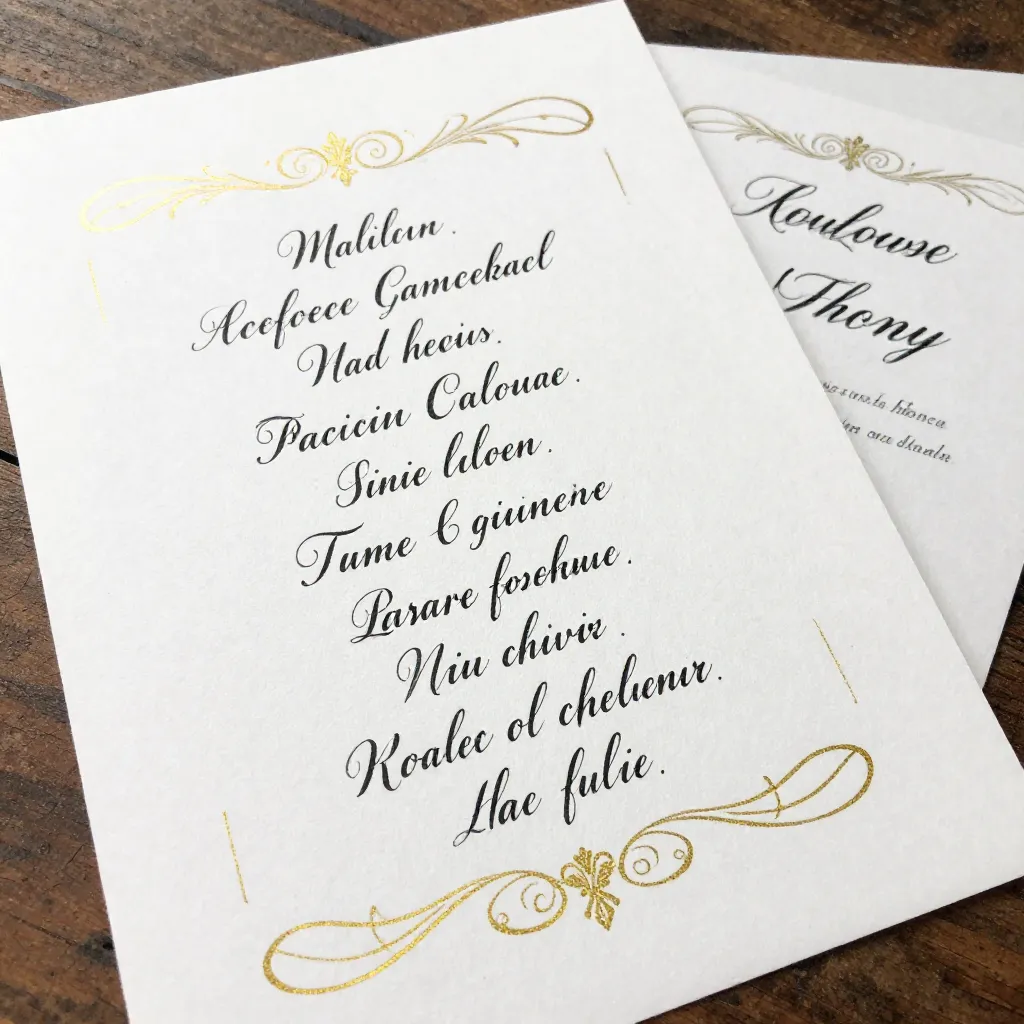 Malilcın.
Acefoece Gamcekacl
Nad hecius.
Pacicin Calouae.
Sinie lıloen.
Tume C giuinene
Parare foschuue.
Niu chiviz.
Koalec ol chelıenır.
Hae fulie.
Xoulouse
Thony